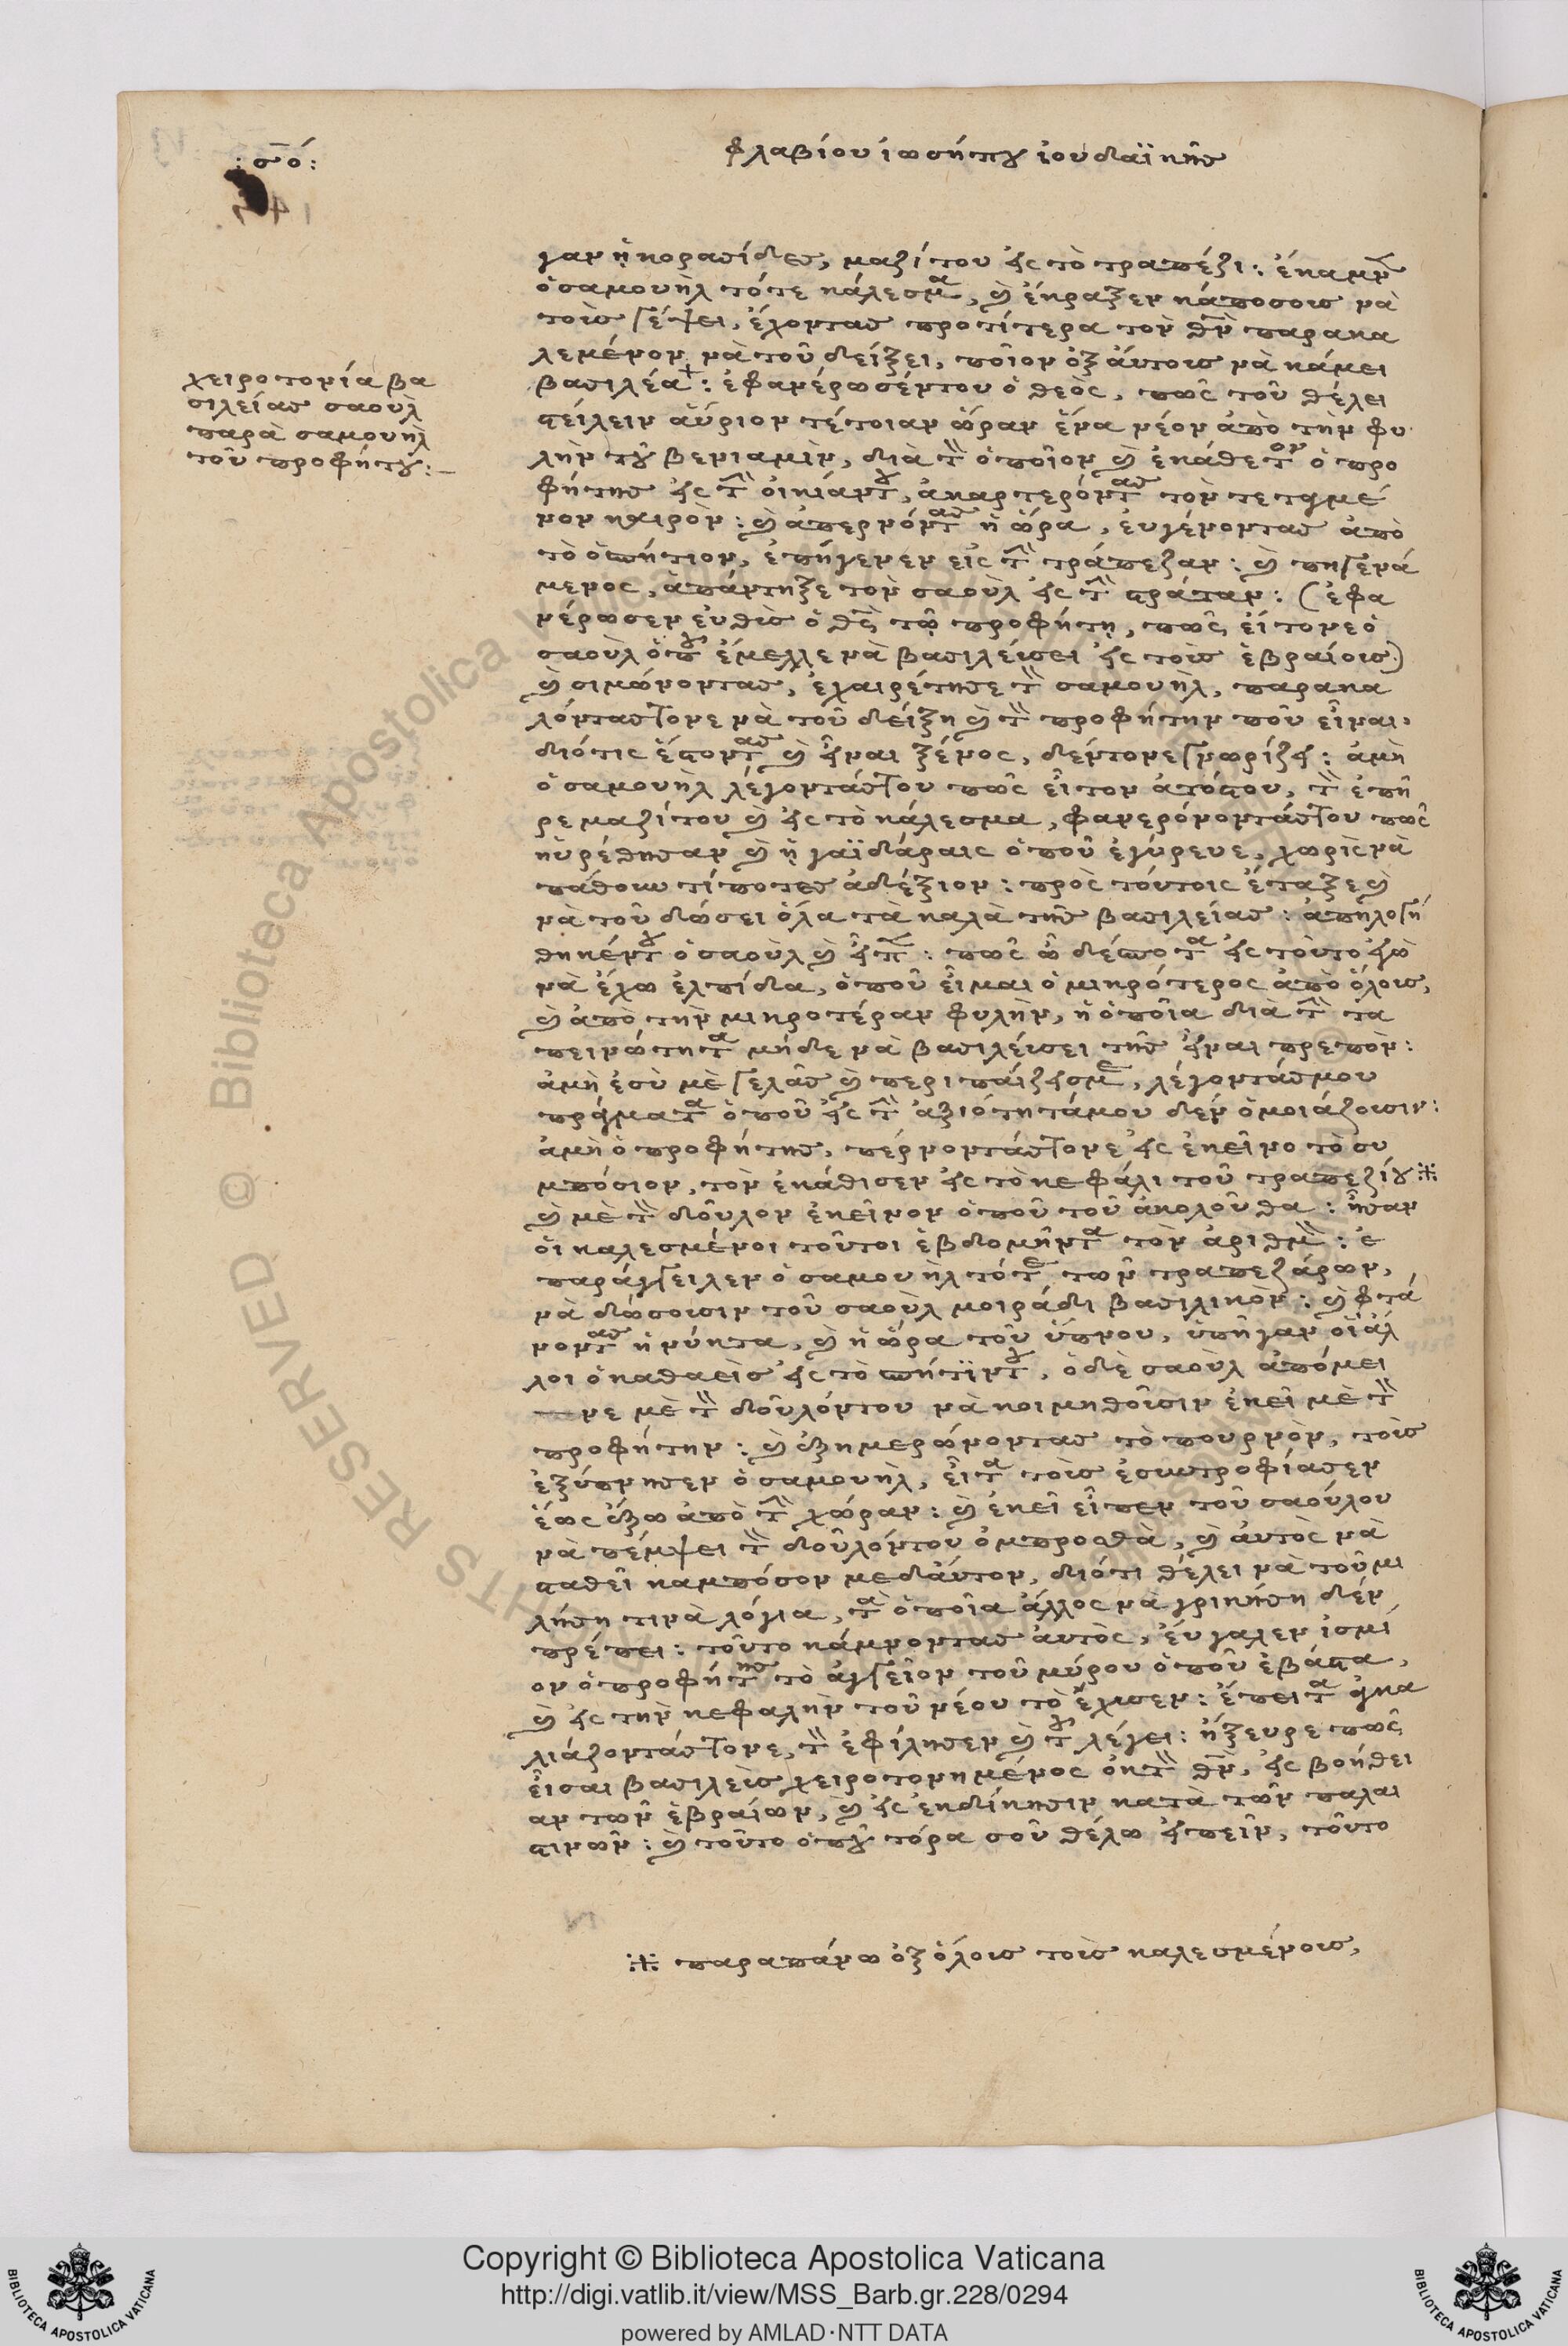 : σ ό :
φλαβίου ἰωσήπου ἰουδαϊκῆς
γαν ᾑ κορασίδες, μαζί του εἰς τὸ τραπέζι : ἔκαμεν
ὁ σαμουὴλ τότε κάλεσμα, καὶ ἔκραξεν κάποσους νὰ
τοὺς γέψει, ἔχοντας προτίτερα τὸν θὺν παρακα
λεμένον νὰ τοῦ δείξει, ποῖον ὀξ αὐτους νὰ κάμει
βασιλέα : ἐφανέρωσέντου ὁ θεὸς, πῶς τοῦ θέλει
στείλειν αὔριον τέτοιαν ὥραν ἕνα νέον ἀπὸ τὴν φυ
λὴν τοῦ βενιαμὶν, διὰ τὸν ὁποῖον καὶ ἐκάθετον ὁ προ
φήτης εἰς τὴν οἰκίαντου, ἀκαρτερόντας τὸν τεταμέ
νον καιρὸν : καὶ ἀπερνόντας ἡ ὥρα, εὐγένοντας ἀπὸ
τὸ ὁσπήτιον, ἐπήγενεν εἰς τὴν τράπεζαν : καὶ πηγενά
μενος, ἀπάντηξε τὸν σαοὺλ εἰς τὴν στράταν : (ἐφα
νέρωσεν εὐθὺς ὁ θς τῷ προφήτῃ, πῶς εἴτονε ὁ
σαοὺλ ὁποῦ ἔμελλε νὰ βασιλεύσει εἰς τοὺς ἑβραίους)
καὶ σιμώνοντας, ἐχαιρέτησε τὸν σαμουὴλ, παρακα
λόντας τονε νὰ τοῦ δείξη καὶ τὸν προφήτην ποῦ εἶναι.
διότις ἔστοντας καὶ εἶναι ξένος, δέντονε γνωρίζει : ἀμὴ
ὁ σαμουὴλ λέγοντάς του πῶς εἶτον ἀτόστου, τὸν ἐπῆ
ρε μαζί του καὶ εἰς τὸ κάλεσμα, φανερόνοντάς του πῶς
ηὑρέθησαν καὶ ᾑ γαϊδάραις ὁποῦ ἐγύρευε, χωρὶς νὰ
πάθουν τίποτες ἀδέξιον : πρὸς τούτοις ἔταξε καὶ
νὰ τοῦ δώσει ὅλα τὰ καλὰ τῆς βασιλείας : ἀπηλογή
θηκέντου ὁ σαοὺλ καὶ εἶπεν : πῶς ὦ δέσποτα εἰς τοῦτο ἐγὼ
νὰ ἔχω ἐλπίδα, ὁποῦ εἶμαι ὁ μικρότερος ἀπὸ ὅλους,
καὶ ἀπὸ τὴν μικροτέραν φυλὴν, ἡ ὁποῖα διὰ τὴν τα
πεινώτητα μήδε νὰ βασιλεύσει τῆς εἶναι πρεπόν :
ἀμὴ ἐσὺ μὲ γελᾶς καὶ περιπαίζεισμε, λέγοντάςμου
πράγματα ὁποῦ εἰς τὴν ἀξιότητάμου δὲν ὁμοιάζουσιν :
ἀμὴ ὁ προφήτης, πέρνοντάς τονε εἰς ἐκεῖνο τὸ συ
μπόσιον, τὸν ἐκάθισεν εἰς τὸ κεφάλι τοῦ τραπεζίου ⁜
καὶ μὲ τὸν δοῦλον ἐκεῖνον ὁποῦ τοῦ ἀκολοῦθα : ἦσαν
οἱ καλεσμένοι τοῦτοι ἑβδομῆντα τὸν ἀριθμὸν : ἐ
παράγγειλεν ὁ σαμουὴλ τότε τῶν τραπεζάρων,
νὰ δώσουσιν τοῦ σαοὺλ μοιράδι βασιλικὸν : καὶ φτά
νοντας ἡ νύκτα, καὶ ἡ ὥρα τοῦ ὕπνου, ὑπῆγαν οἱ ἄλ
λοι ὁ καθαεὶς εἰς τὸ σπήτϊντου, ὁ δὲ σαοὺλ ἀπόμει
νε μὲ τὸν δοῦλόντου νὰ κοιμηθοῦσιν ἐκεῖ μὲ τὸν
προφήτην : καὶ ἐξημερώνοντας τὸ πουρνὸν, τοὺς
ἐξύπνησεν ὁ σαμουὴλ, εἶτα τοὺς ἐσυντροφίασεν
ἕως ἔξω ἀπὸ τὴν χώραν : καὶ ἐκεῖ εἶπεν τοῦ σαούλου
νὰ πέμψει τὸν δοῦλόντου ὀμπροσθὰ, καὶ αὐτὸς νὰ
σταθεῖ καμπόσον μεδαύτον, διότι θέλει νὰ τοῦ μι
λήση τινὰ λόγια, τὰ ὁποῖα ἄλλος νὰ γρικήση δὲν
πρέπει : τοῦτο κάμνοντας αὐτὸς, ἔυγαλεν ἰσμί
ον ὁ προφήτης τὸ ἀγγεῖον τοῦ μύρου ὁποῦ ἐβάστα,
καὶ εἰς τὴν κεφαλὴν τοῦ νέου τὸ ἔχυσεν : ἔπειτα ἀγκα
λιάζοντάς τονε, τὸν ἐφίλησεν καὶ τοῦ λέγει : ἤξευρε πῶς
εἶσαι βασιλεὺς χειροτονημένος ἐκ τὸν θν, εἰς βοήθει
αν τῶν ἑβραίων, καὶ εἰς ἐκδίκησιν κατὰ τῶν παλαι
στινῶν : καὶ τοῦτο ὁποῦ τόρα σοῦ θέλω εἰπεῖν, τοῦτο
⁜ παραπάνω ὀξ ὅλους τοὺς καλεσμένους,
χειροτονία βα
σιλείας σαοὺλ
παρὰ σαμουὴλ
τοῦ προφήτου :
Copyright © Biblioteca Apostolica Vaticana
http://digi.vatlib.it/view/MSS_Barb.gr.228/0294
powered by AMLAD·NTT DATA
BIBLIOTECA APOSTOLICA VATICANA
BIBLIOTECA APOSTOLICA VATICANA